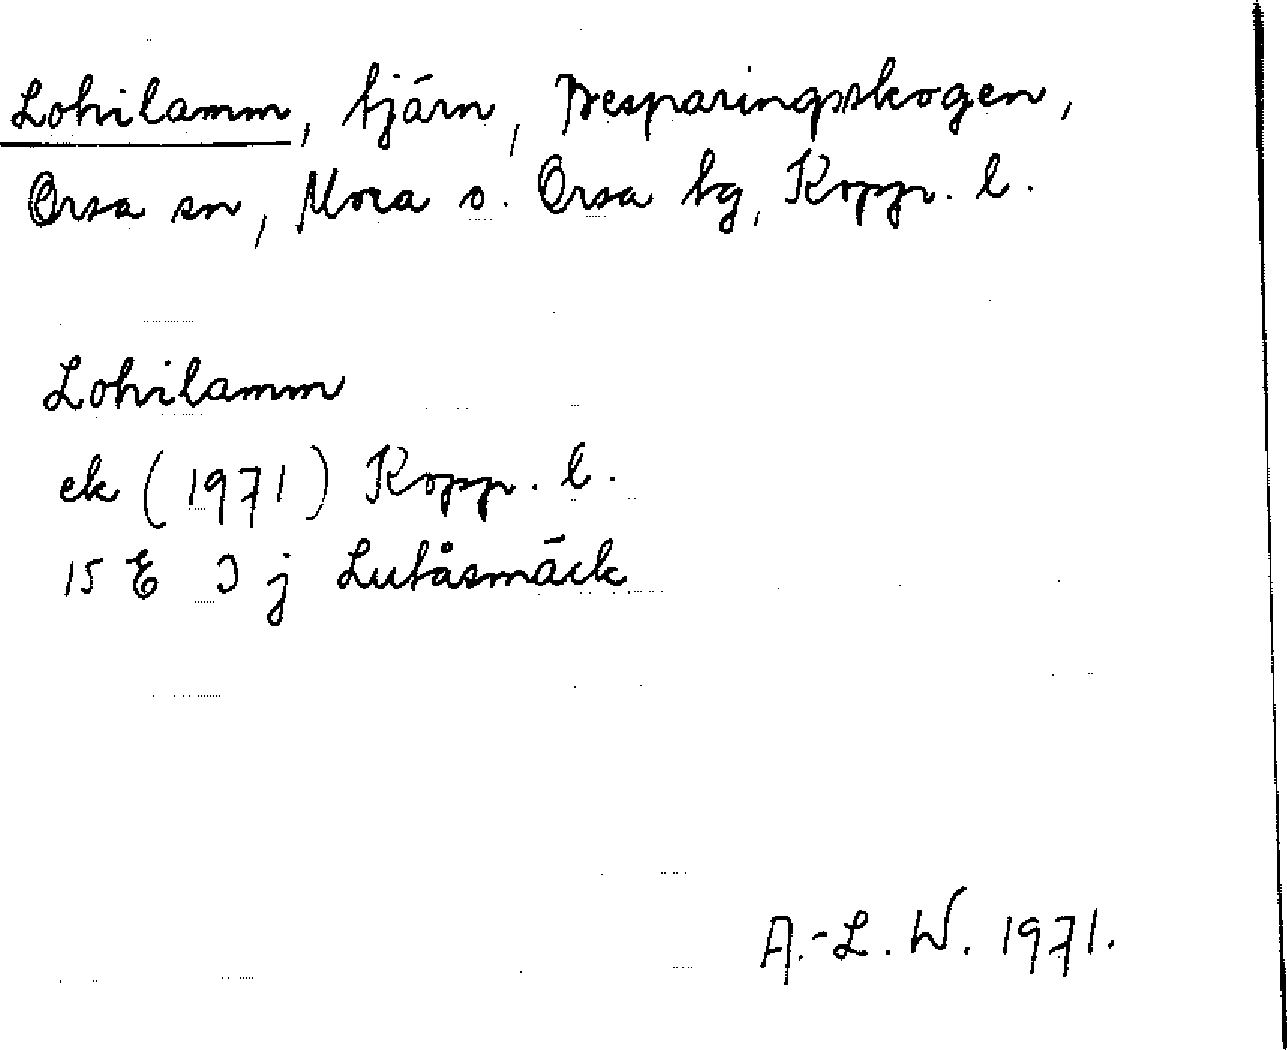 Lohilamm, tjärn, Besparingsskogen,
Orsa sn, Mora o. Orsa tg, Kopp. l.
Lohilamm
ek (1971) Kopp. l.
15 E J j Lutåsmäck
A.-L. W. 1971.